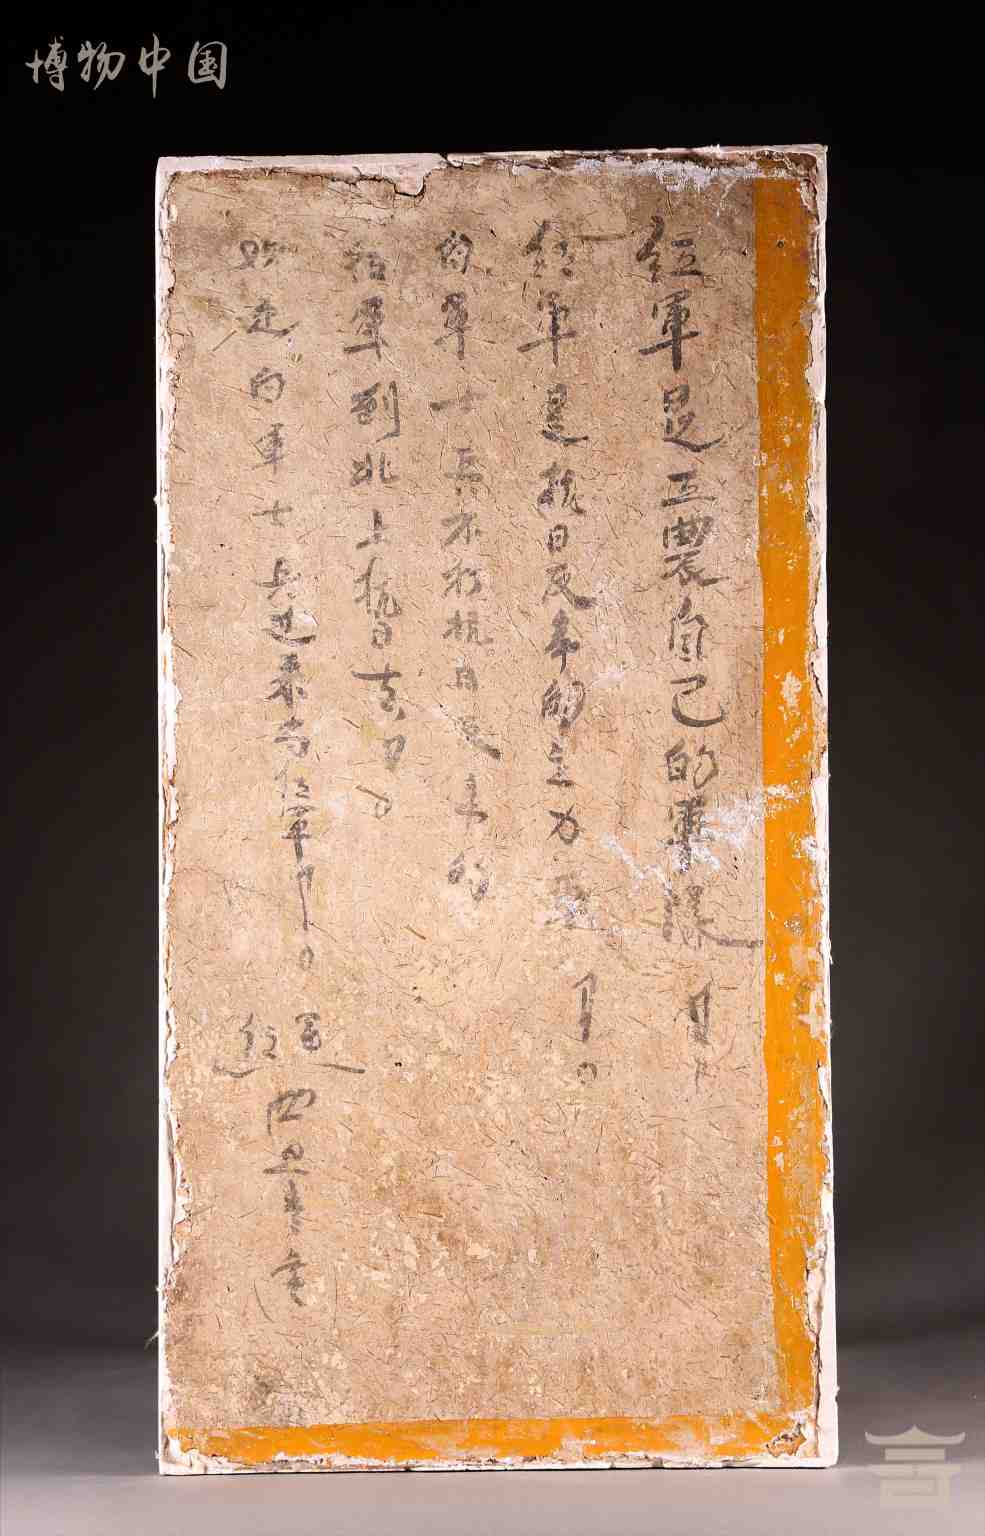 博物中国
红軍是工農自己的軍隊
红軍是抗日反帝的主力
白軍士兵不打抗日反帝的
红軍到北上抗日去
白軍士兵过来当红軍
红
四